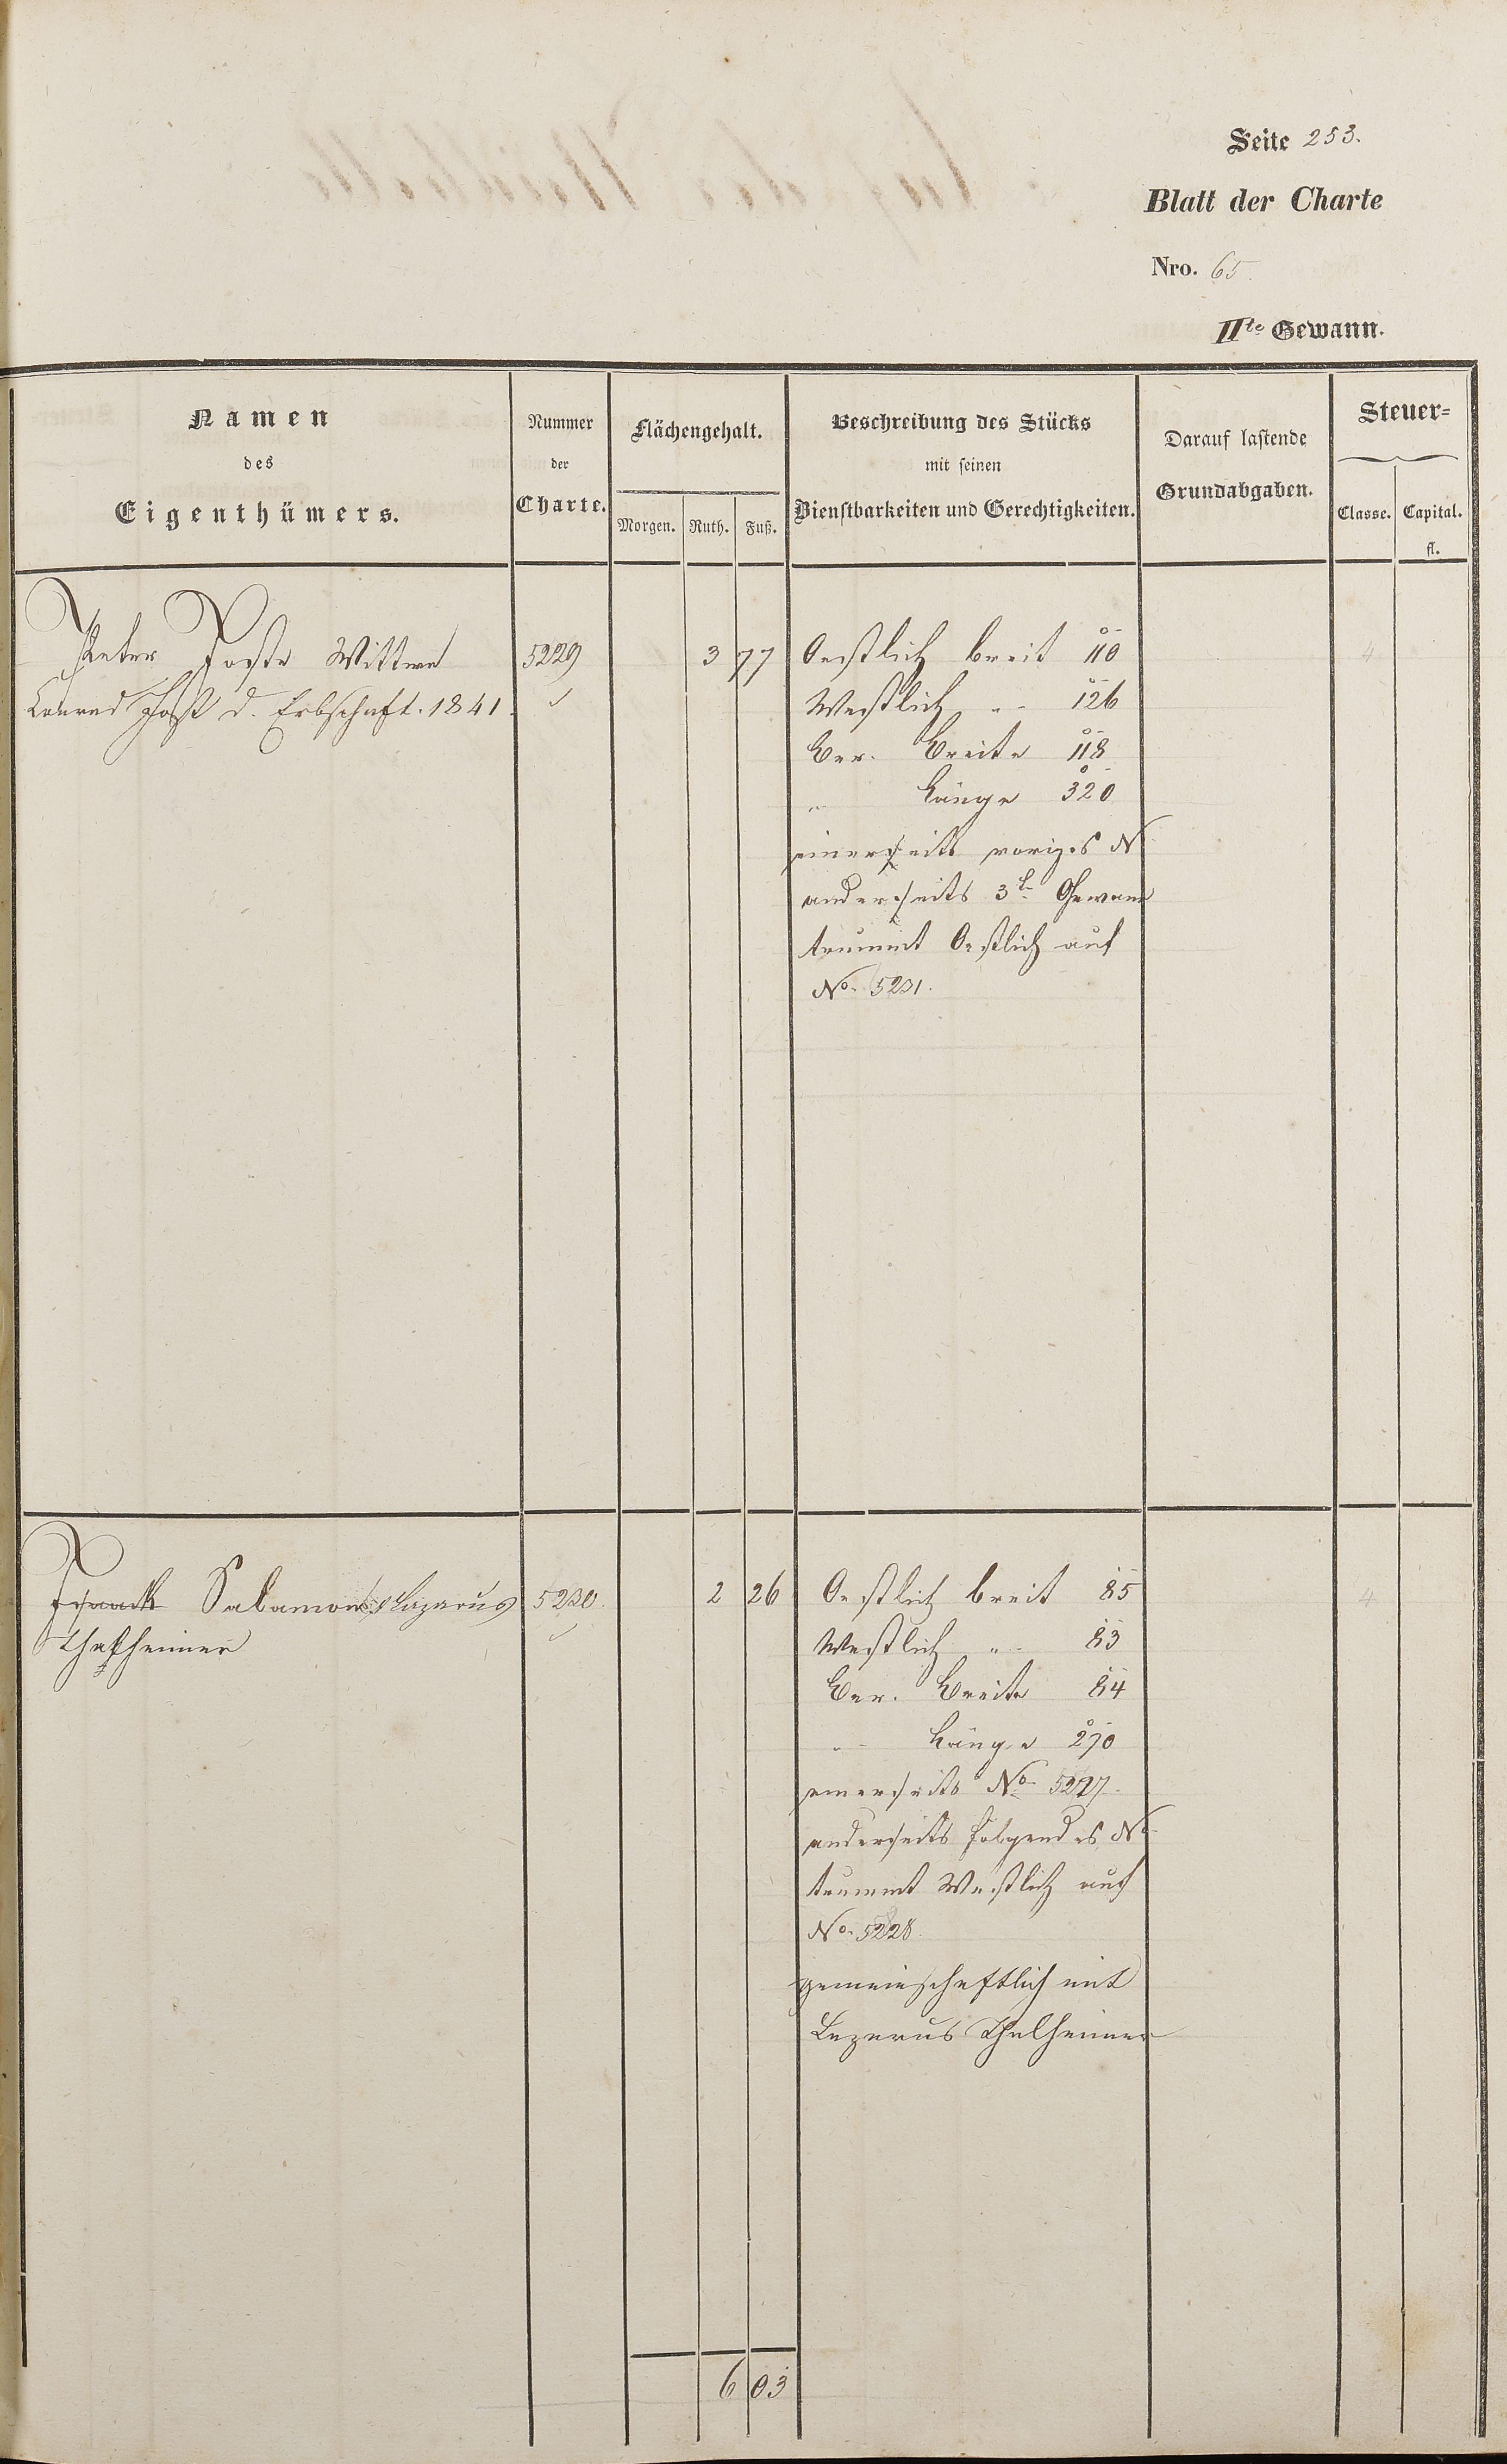 Seite 253.
Blatt der Charte
Nro. 65
IIte Gewann.
Namen
des
Eigenthümers.
Nummer
der
Charte.
Flächengehalt.
Morgen. Ruth. Fuß.
Beschreibung des Stücks
mit seinen
Dienstbarkeiten und Gerechtigkeiten.
Darauf lastende
Grundabgaben.
Steuer-
Classe. Capital.
fl.
Peter Joste Wittwe 5229 3 77 Oestlich breit 110 4
Conrad Jost d. Erbschaft. 1841. Westlich " 126
Ber. Breite 118
" Länge 320
einerseits voriges N
anderseits 3t Gewann
trummt Oestlich auf
No. 5231.
Salamon Lazarus 5230. 2 26 Oestlich breit 85 4
Thalheimer Westlich " 83
Ber. Breite 84
" Länge 270
einerseits No 5227.
anderseits folgendes No
trummt Westlich auf
No. 5228.
gemeinschaftlich mit
Lazarus Thalheimer
6 03